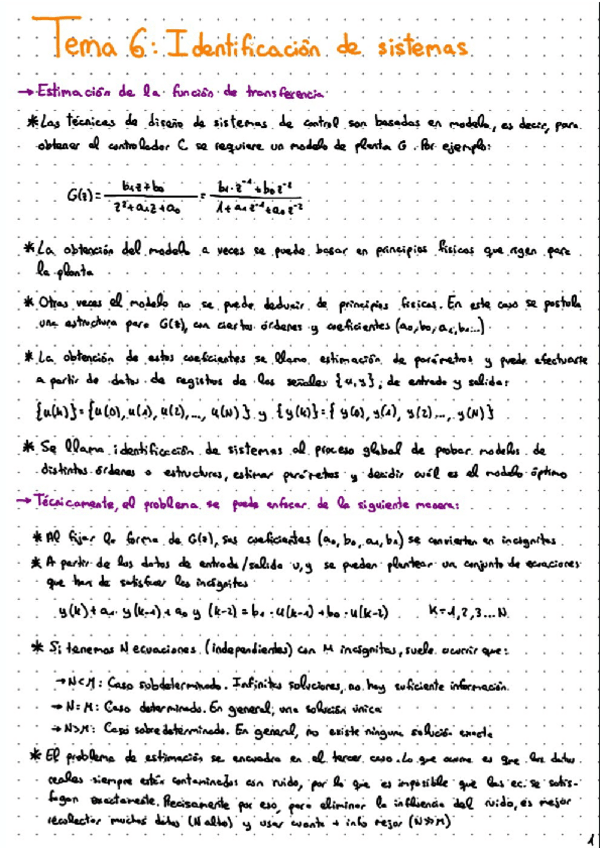 Tema 6: Identificación de sistemas
→ Estimación de la función de transferencia
* Las técnicas de diseño de sistemas de control son basadas en modelo, es decir, para
obtener el controlador C se requiere un modelo de planta G. Por ejemplo:
G(z) = (b₁z + b₀) / (z² + a₁z + a₀) = (b₁·z⁻¹ + b₀z⁻²) / (1 + a₁z⁻¹ + a₀z⁻²)
* La obtención del modelo a veces se puede basar en principios físicos que rigen para
la planta
* Otras veces el modelo no se puede deducir de principios físicos. En este caso se postula
una estructura para G(z), con ciertos órdenes y coeficientes (a₀, b₀, a₁, b₁...)
* La obtención de estos coeficientes se llama estimación de parámetros y puede efectuarse
a partir de datos de registros de las señales {u,y}, de entrada y salida:
{u(k)} = {u(0), u(1), u(2), ..., u(N)} y {y(k)} = {y(0), y(1), y(2) ..., y(N)}
* Se llama identificación de sistemas al proceso global de probar modelos de
distintos órdenes o estructuras, estimar parámetros y decidir cuál es el modelo óptimo
→ Técnicamente, el problema se puede enfocar de la siguiente manera:
* Al fijar la forma de G(z), sus coeficientes (a₀, b₀, a₁, b₁) se convierten en incógnitas
* A partir de los datos de entrada/salida u,y se pueden plantear un conjunto de ecuaciones
que han de satisfacer las incógnitas
y(k) + a₁·y(k-1) + a₀ y(k-2) = b₁·u(k-1) + b₀·u(k-2) K=1,2,3...N
* Si tenemos N ecuaciones (independientes) con M incógnitas, suele ocurrir que:
→ N<M: Caso subdeterminado. Infinitas soluciones, no hay suficiente información.
→ N=M: Caso determinado. En general, una solución única
→ N>M: Caso sobredeterminado. En general, no existe ninguna solución exacta
* El problema de estimación se encuadra en el tercer caso. Lo que ocurre es que los datos
reales siempre están contaminados con ruido, por lo que es imposible que las ec. se satis-
fagan exactamente. Precisamente por eso, para eliminar la influencia del ruido, es mejor
recolectar muchos datos (N alto) y usar cuanta + info mejor (N≫M)
1